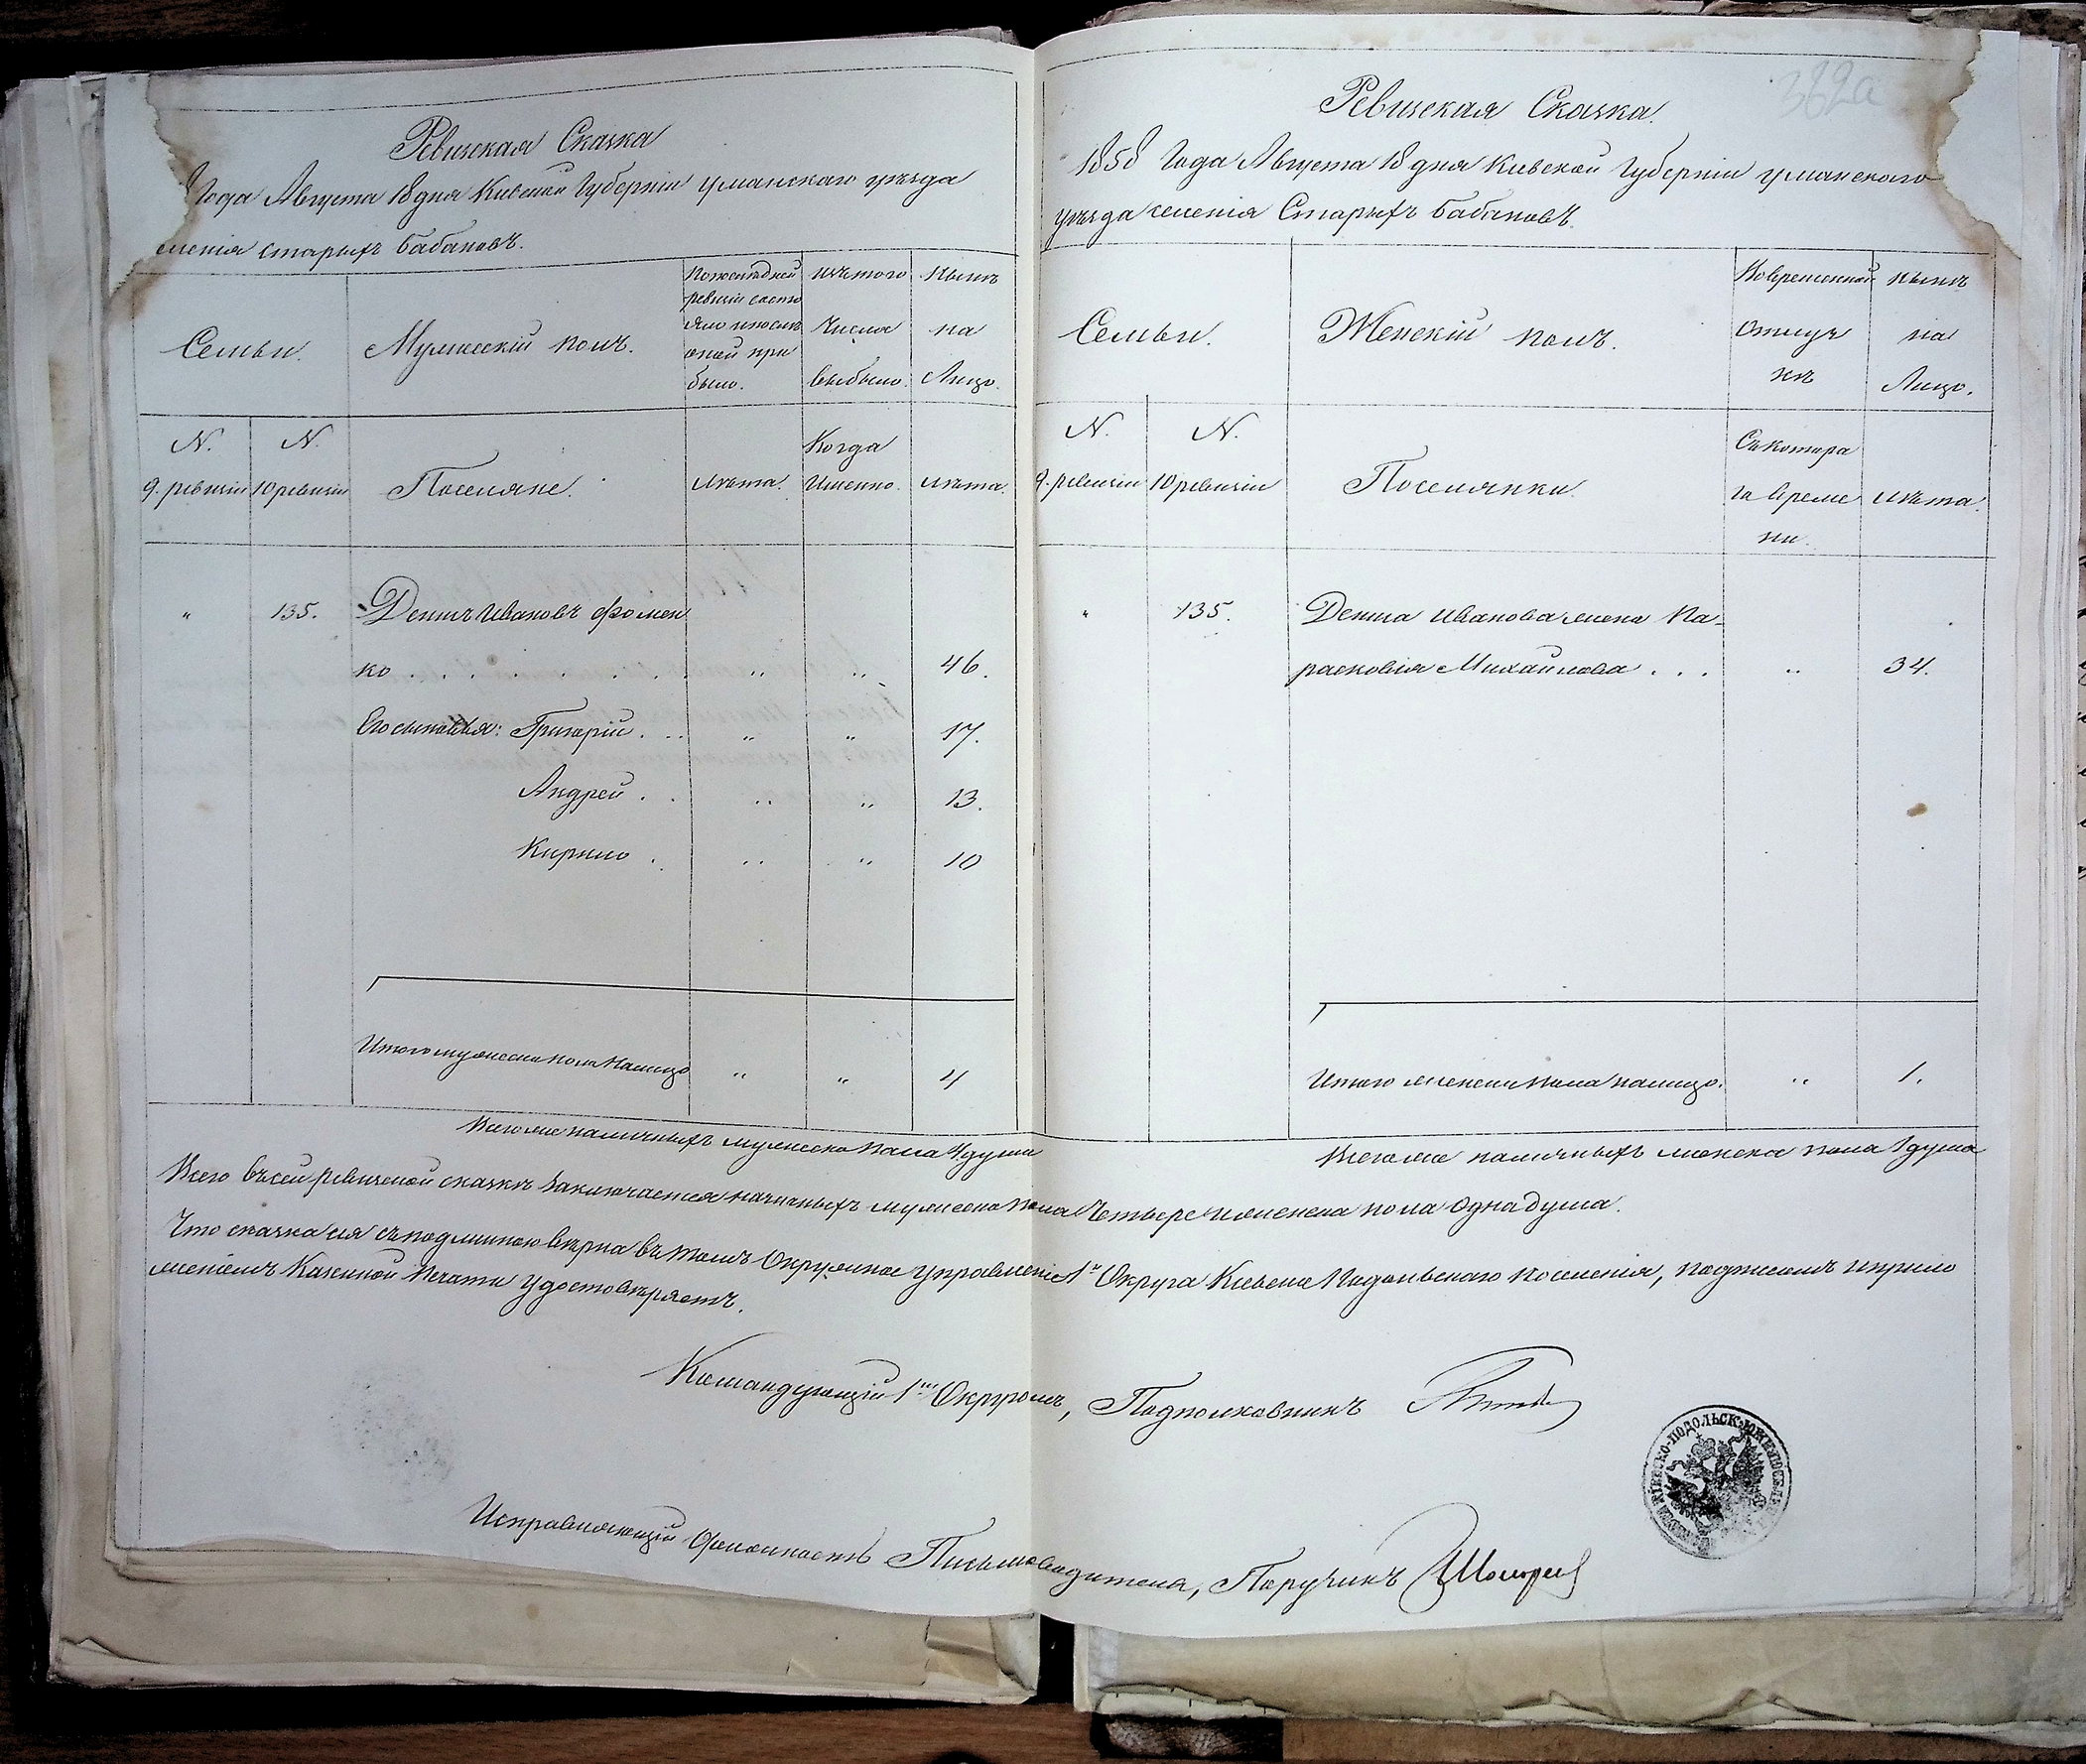 Ревизская Сказка
Года Августа 18 дня Киевской Губерніи Уманскаго уѣзда
еленія старыхъ Бабановъ.
Семьи.
Мужескій полъ.
По последней
ревизіи состо
яло и после
оной при
было.
Изъ того
числа
выбыло.
Нынѣ
на
Лицо.
N.
9. ревизіи
N.
10 ревизіи
Поселяне.
Лѣта.
Когда
Именно.
Лѣта.
" 135. Денисъ Ивановъ Фомен
ко . . . . . . . " " 46.
Его сыновья: Григорій . . " " 17.
Андрей . . " " 13.
Кирило . " " 10
Итого мужеска пола налицо " " 4
Всего же наличныхъ мужеска пола 4 души
382а
Ревизская Сказка.
1858 Года Августа 18 дня Киевской Губерніи Уманскаго
уѣзда селенія Старыхъ Бабановъ.
Семьи.
Женскій полъ.
Во временной
отлуч
кѣ
Нынѣ
на
Лицо.
N.
9. ревизіи
N.
10 ревизіи
Поселянки.
Съ котора
го Време
ни.
Лѣта.
" 135. Дениса Иванова жена Па-
расковія Михайлова . . . " 34.
Итого женска пола налицо. " 1.
Всего же наличныхъ женска пола 1 душа
Всего въ сей ревизской сказкѣ заключается наличныхъ мужеска пола Четыре и женска пола одна душа.
Что сказка сія съ подлинною вѣрна въ томъ Окружное Управленіе 1го Округа Киевско Подольскаго поселенія, подписомъ и прило
женіемъ Казенной Печати удостовѣряетъ.
Командующій 1мъ Округомъ, Подполковникъ
Исправляющій Должность Письмоводителя, Поручикъ